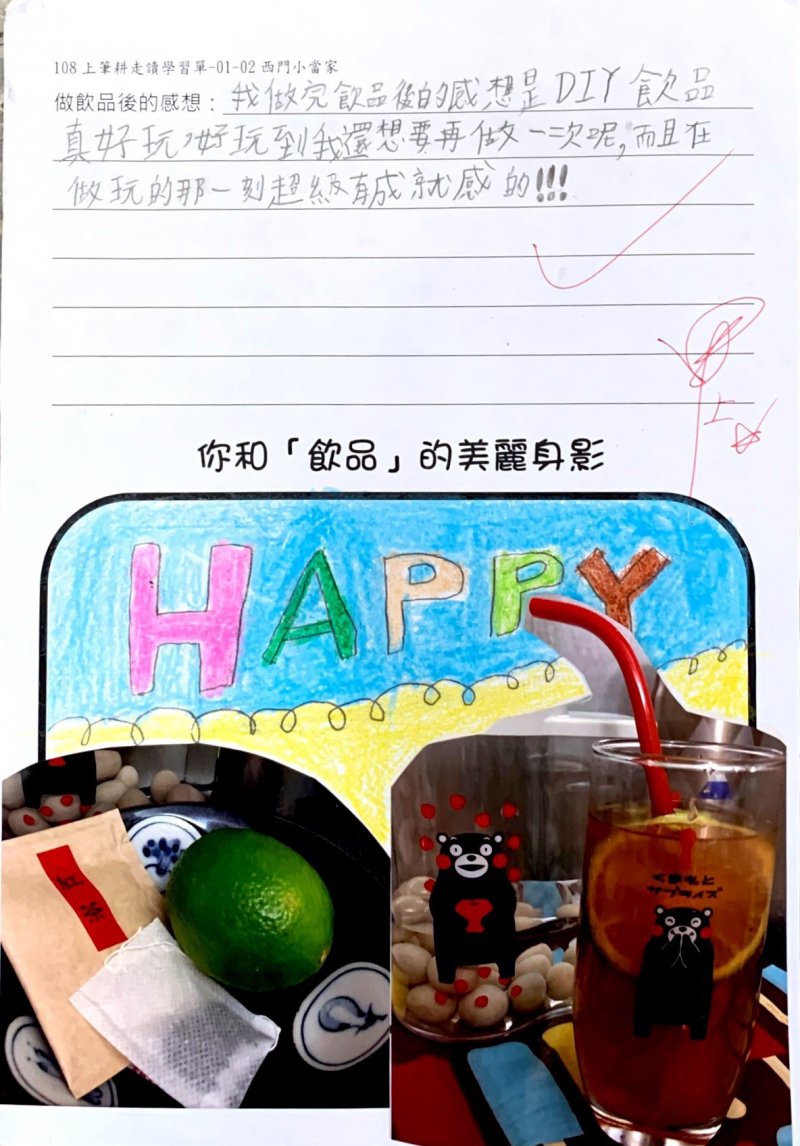 108上筆耕走讀學習單-01-02西門小當家
做飲品後的感想：我做完飲品後的感想是DIY飲品
真好玩，好玩到我還想要再做一次呢，而且在
做玩的那一刻超級有成就感的!!!
你和「飲品」的美麗身影
HAPPY
紅茶
くまもと
サプライズ